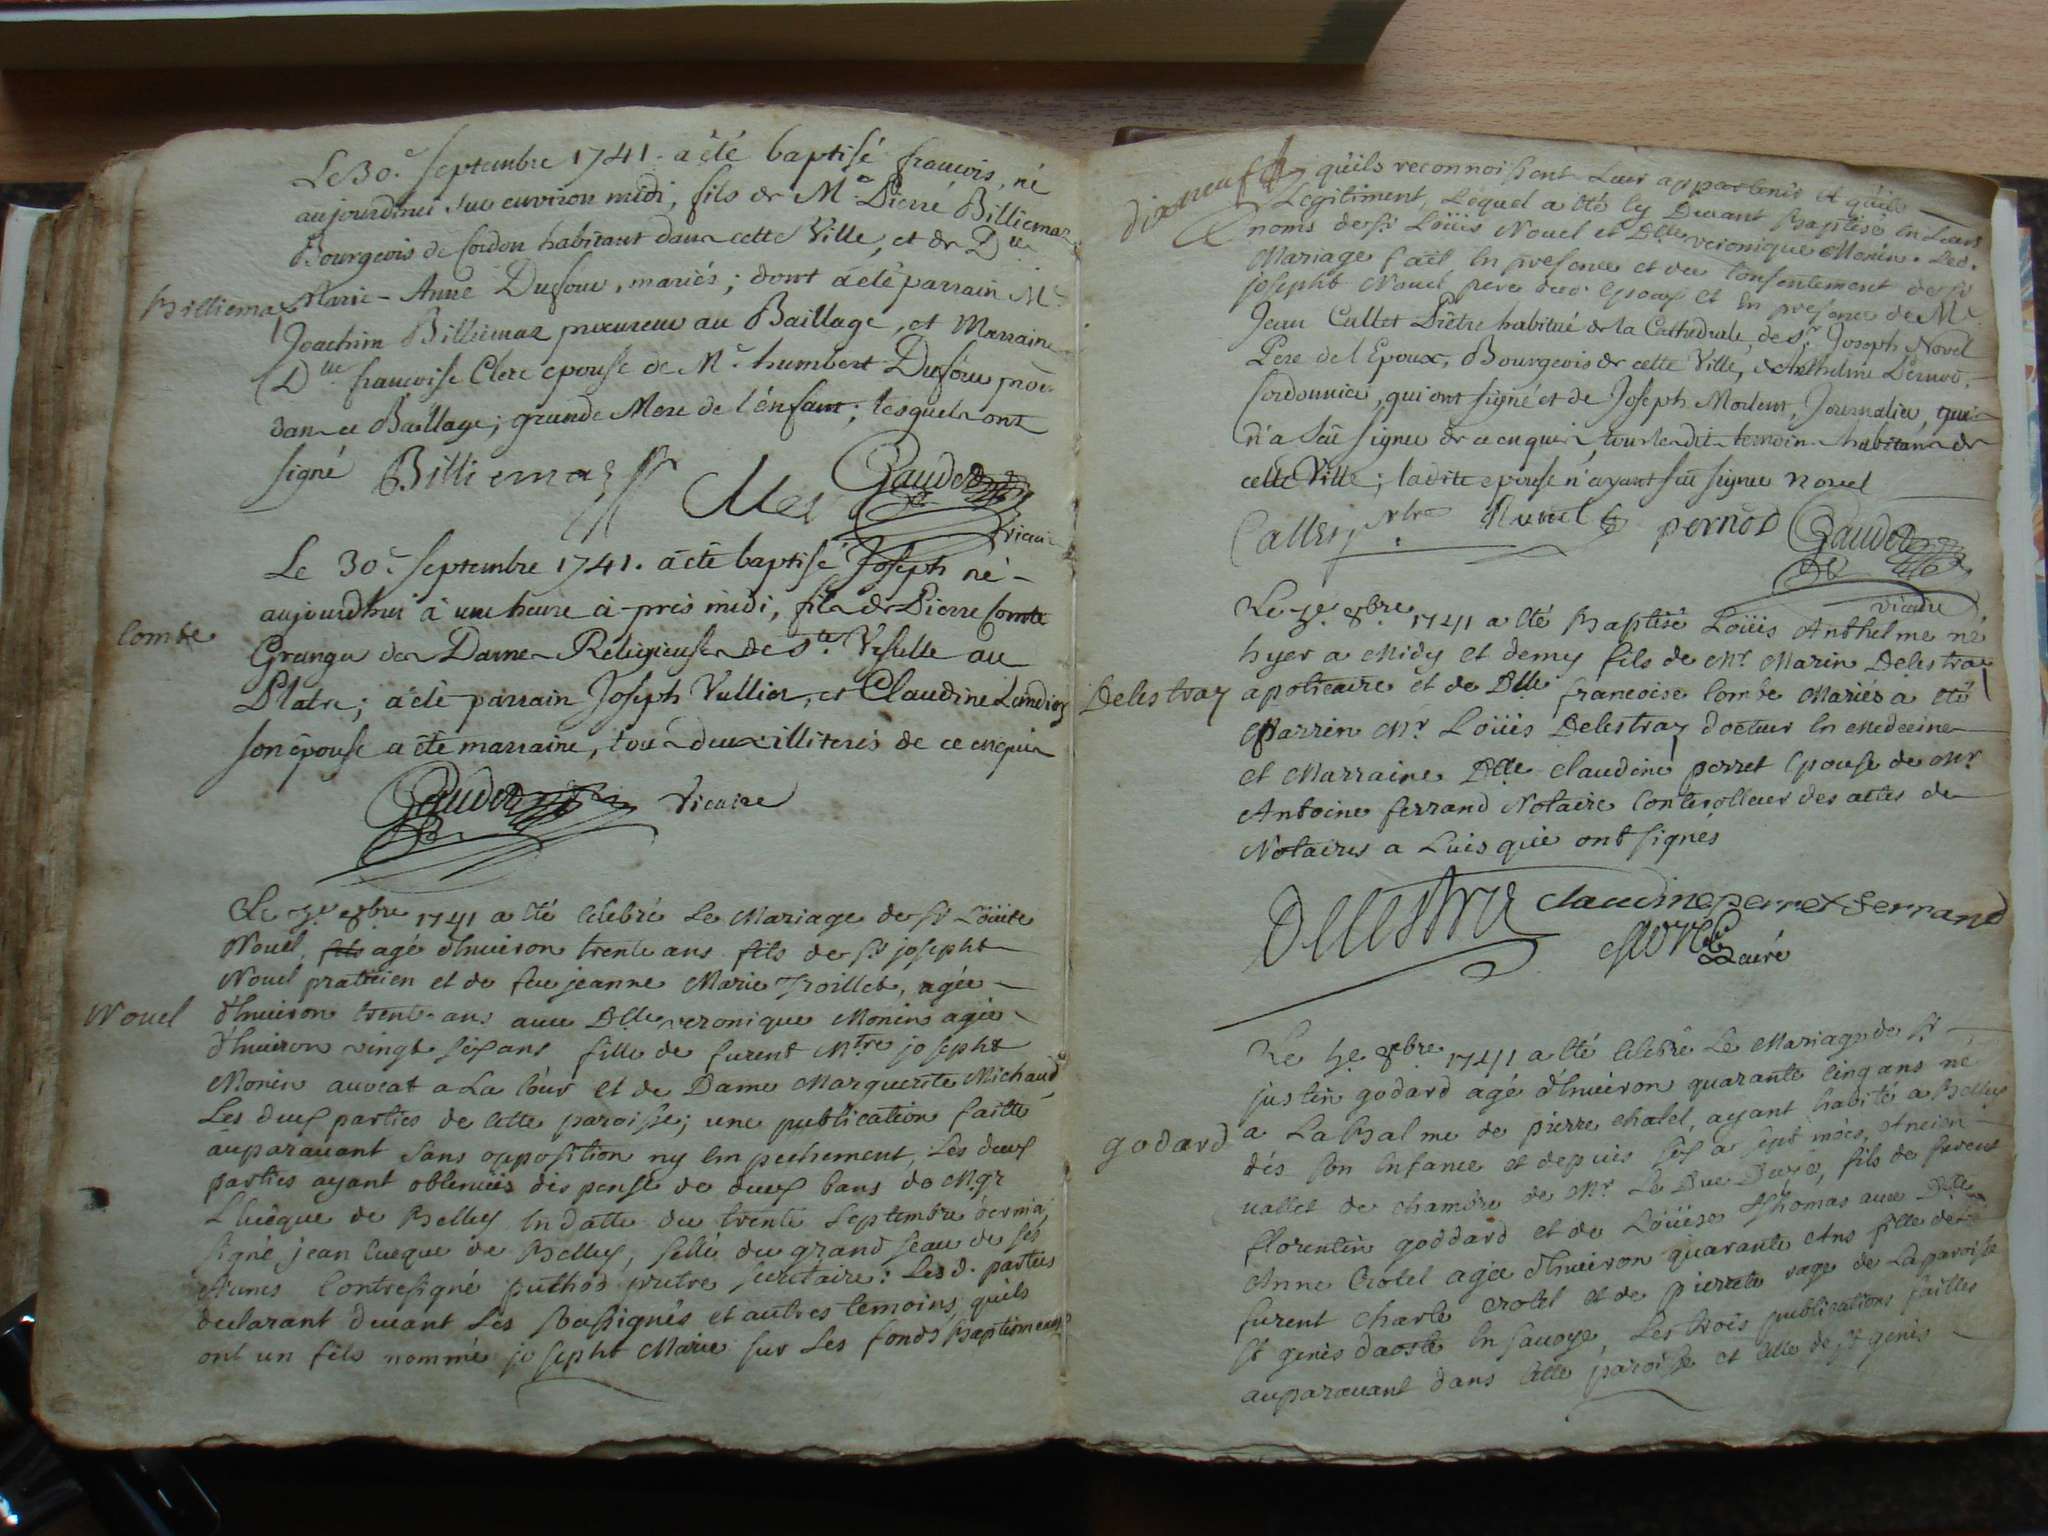 Le 30.e septembre 1741. a été baptisé francois, né
aujourdhui sur environ midi, fils de M.e Pierre Billiemaz
Bourgeois de Cordon habitant dans cette Ville, et de D.lle
Billiemaz
Marie-Anne Dufour, mariés; dont a été parrain M.e
Joachim Billiemaz procureur au Baillage, et Marraine
D.lle francoise Clerc epouse de M.e humbert Dufour
dans ce Baillage; grande Mere de l'enfant; lesquels ont
signé Billiemaz
Gauder
Vicaire
Le 30.e septembre 1741. a été baptisé Joseph né
aujourdhui à une heure après midi, fils de Pierre Comte
Comte
Granger des Dames Religieuses de S.te Ursulle au
Platre; a été parrain Joseph Vullier, et Claudine
son épouse a été marraine, tous deux illiterés de ce enquis
Gauder Vicaire
Le 3.e 8bre 1741 a été Celebré Le Mariage de Sr Loüis
Nouel, fils agé d'Enuiron trente ans fils de Sr josepht
Nouel praticien et de feue jeanne Marie Troillet, agée
Nouel
d'Enuiron trente ans auec Dlle veronique Monin agée
d'Enuiron vingt six ans fille de furent Mtre josepht
Monin auocat a La Cour et de Dame Marguerite Michaud
Les deux parties de Cette paroisse; une publication faitte
auparauant sans opposition ny Empechement, Les deux
parties ayant obtenües dispense de deux bans de Mgr
L'Euêque de Belley En datte du trente Septembre dernier
signé jean Eueque de Belley, sellé du grand seau de ses
Armes Contresigné puthod pretre secretaire: Lesd. parties
declarant deuant Les soussignés et autres temoins, quils
ont un fils nommé josepht Marie sur Les fonds Baptismaux
dixneuf
qu'ils reconnoissent Leur appartenir et qu'ils
Legitiment, Lequel a été cy Deuant Baptisé En Leurs
noms de Sr Loüis Nouel et Dlle veronique Monin. Led.
Mariage fait En presence et du Consentement de Sr
josepht Nouel pere dud. Epoux et En presence de M.e
Jean Cullet Prêtre habitué de la Cathedrale, de S.r Joseph Novel
Pere de l'Epoux, Bourgeois de cette Ville, d'Anthelme Pernod,
Cordonnier, qui ont signé et de Joseph Morlent, Journalier, qui
n'a sçû signer de ce enquis, tous lesdits temoins habitans de
cette Ville; ladite epouse n'ayant sçû signer Novel
Cullet, ptre Nouel pernod Gauder
vicaire
Le 3.e 8.bre 1741 a été Baptisé Loüis Anthelme né
hyer a Midy et demy fils de Mr Marin Delestraz
Delestraz
apoticaire et de Dlle francoise Combe Mariés a été
Parrein Mr Loüis Delestraz docteur En Medecine
et Marraine Dlle Claudine perret Epouse de Mr
Antoine ferrand Notaire Controlleur des actes de
Notaires a Luis qui ont signés
Delestraz Claudine perret ferrand
Curé
Le 4.e 8bre 1741 a été Celebré Le Mariage de Sr
justin godard agé d'Enuiron quarante Cinq ans né
godard
a La Balme de pierre chatel, ayant habité a Belley
dés son Enfance et depuis six a sept mois, ancien
vallet de chambre de Mr Le Duc fils de furent
florentin goddard et de Loüise Thomas auec Dlle
Anne Crotel agée d'Enuiron quarante Ans fille de
furent Charle Crotel et de pierrete rage de La paroisse
St genis daoste En Sauoye, Les trois publications faittes
auparauant dans Cette paroisse et Celle de St genis